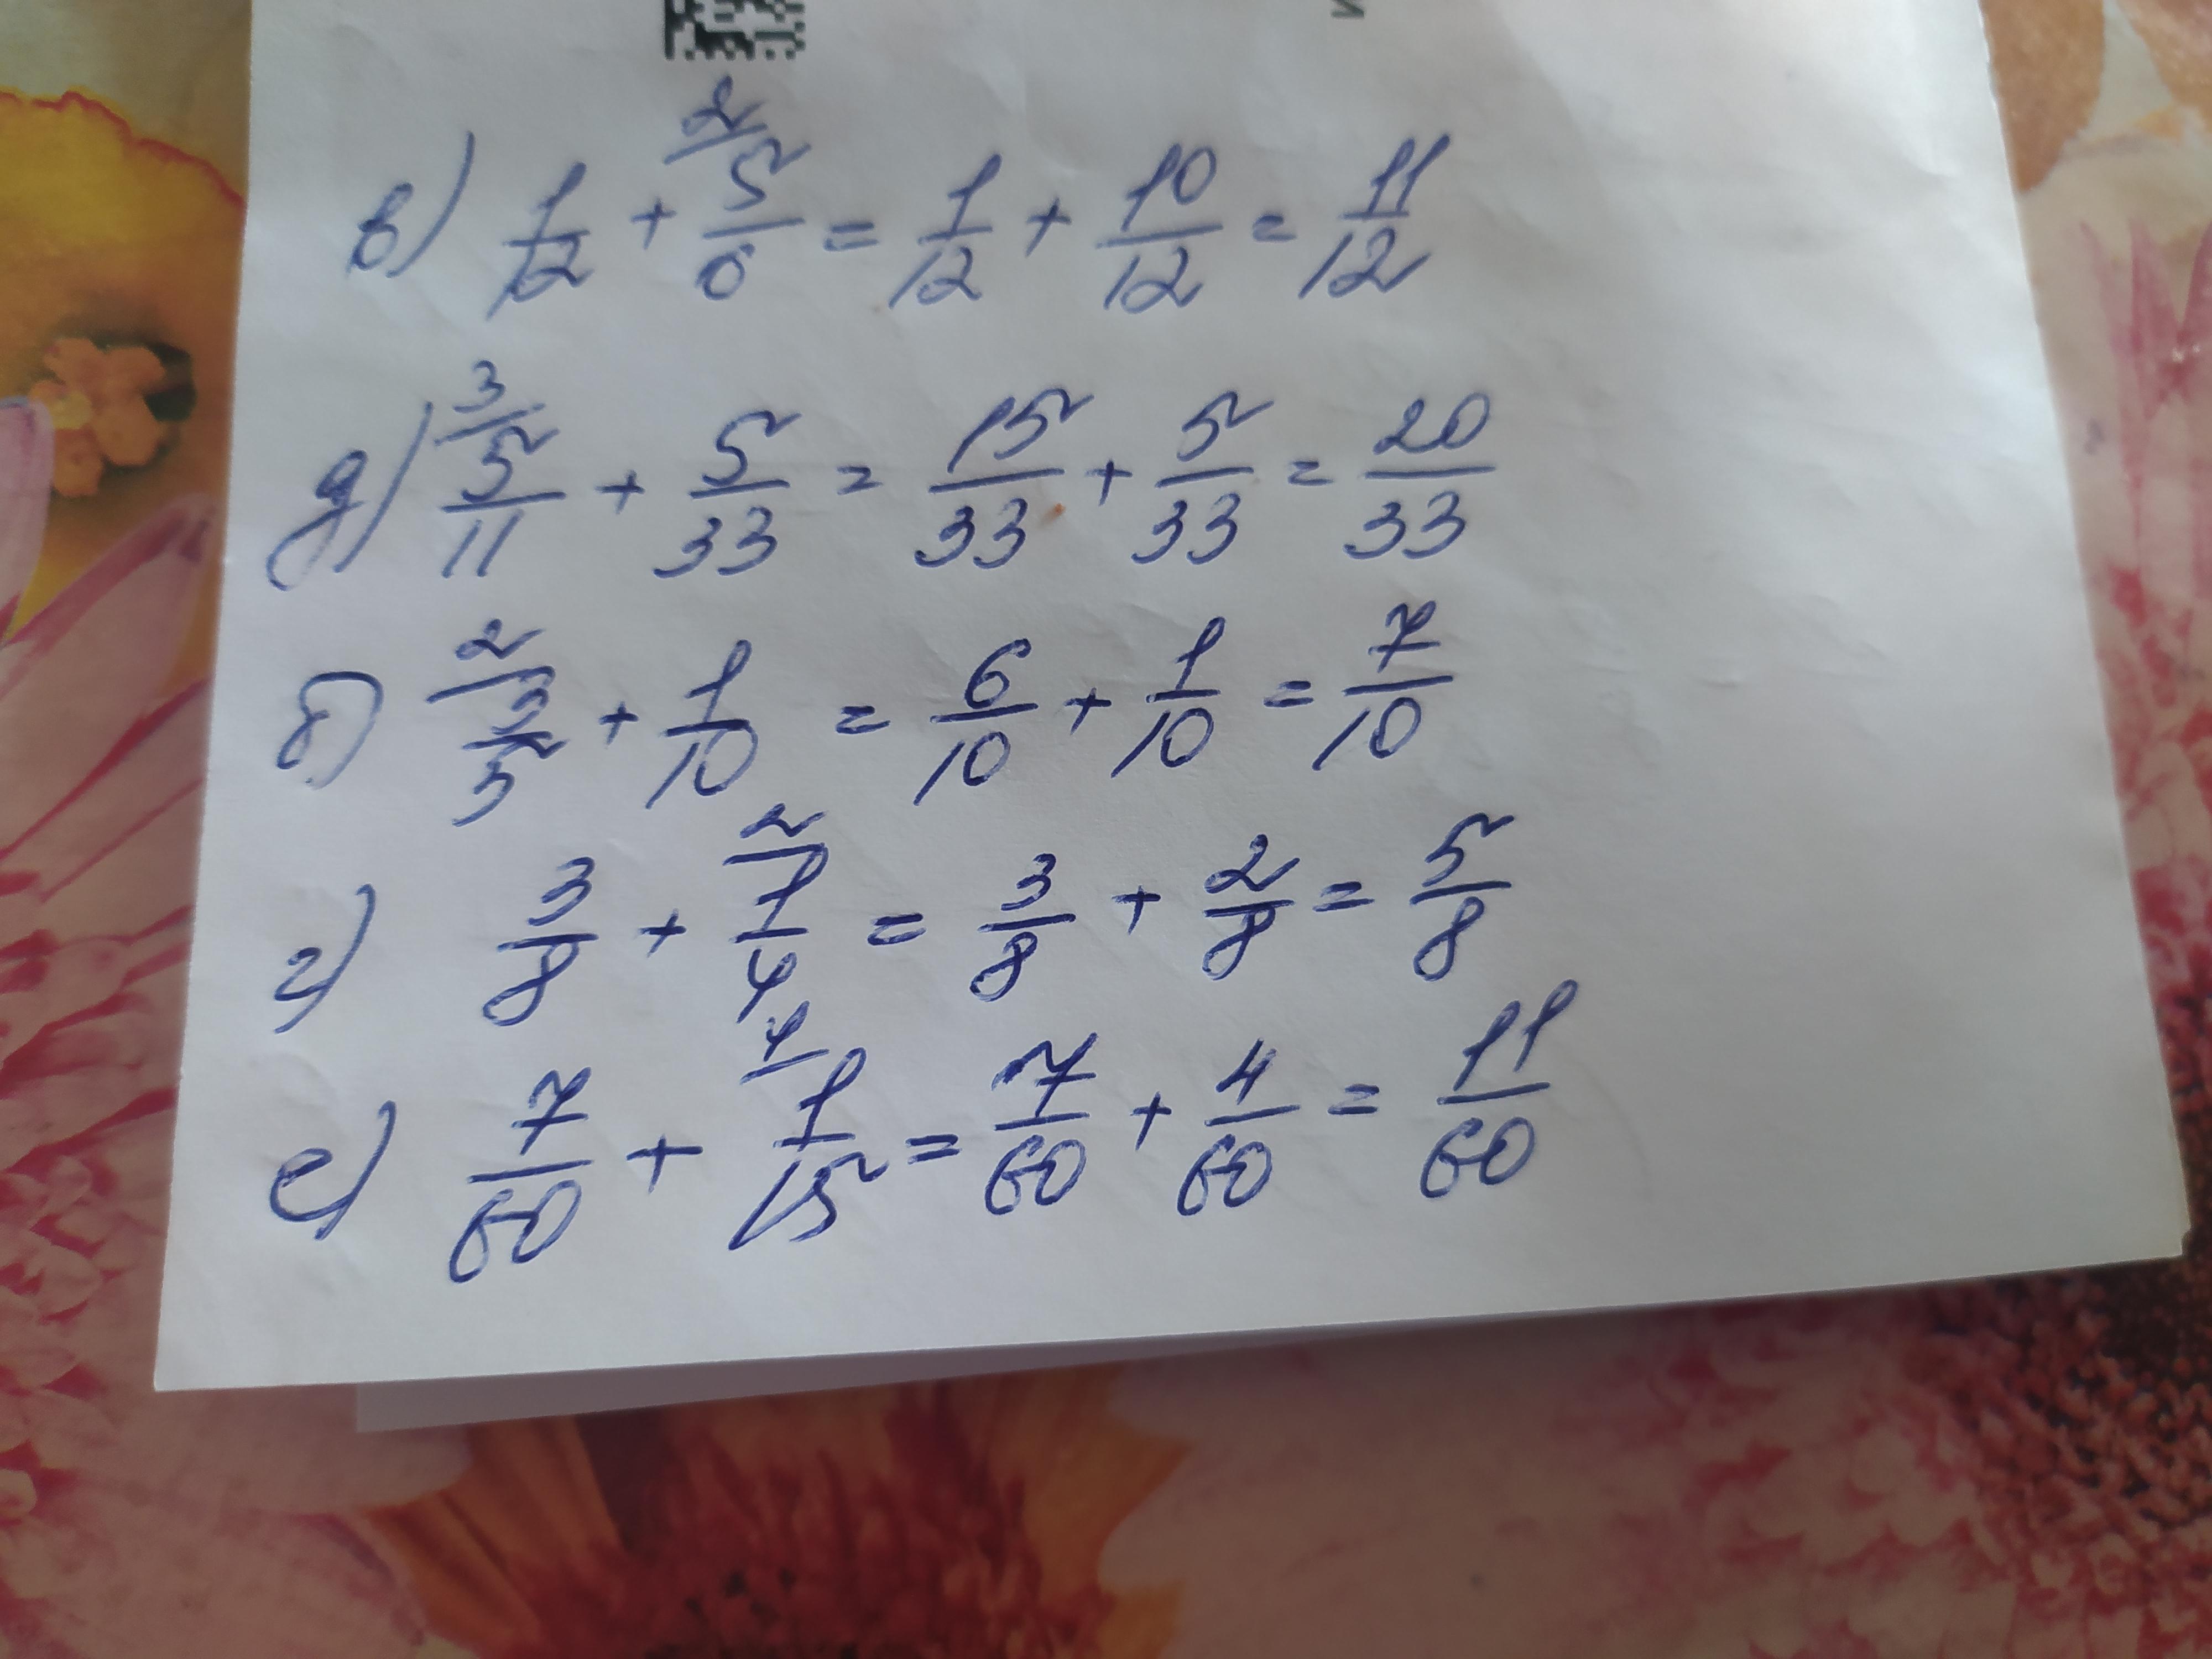 и
в) 1/12 + 2/5/6 = 1/12 + 10/12 = 11/12
д) 3/5/11 + 5/33 = 15/33 + 5/33 = 20/33
б) 2/3/5 + 1/10 = 6/10 + 1/10 = 7/10
г) 3/8 + 2/1/4 = 3/8 + 2/8 = 5/8
е) 7/60 + 4/1/15 = 7/60 + 4/60 = 11/60